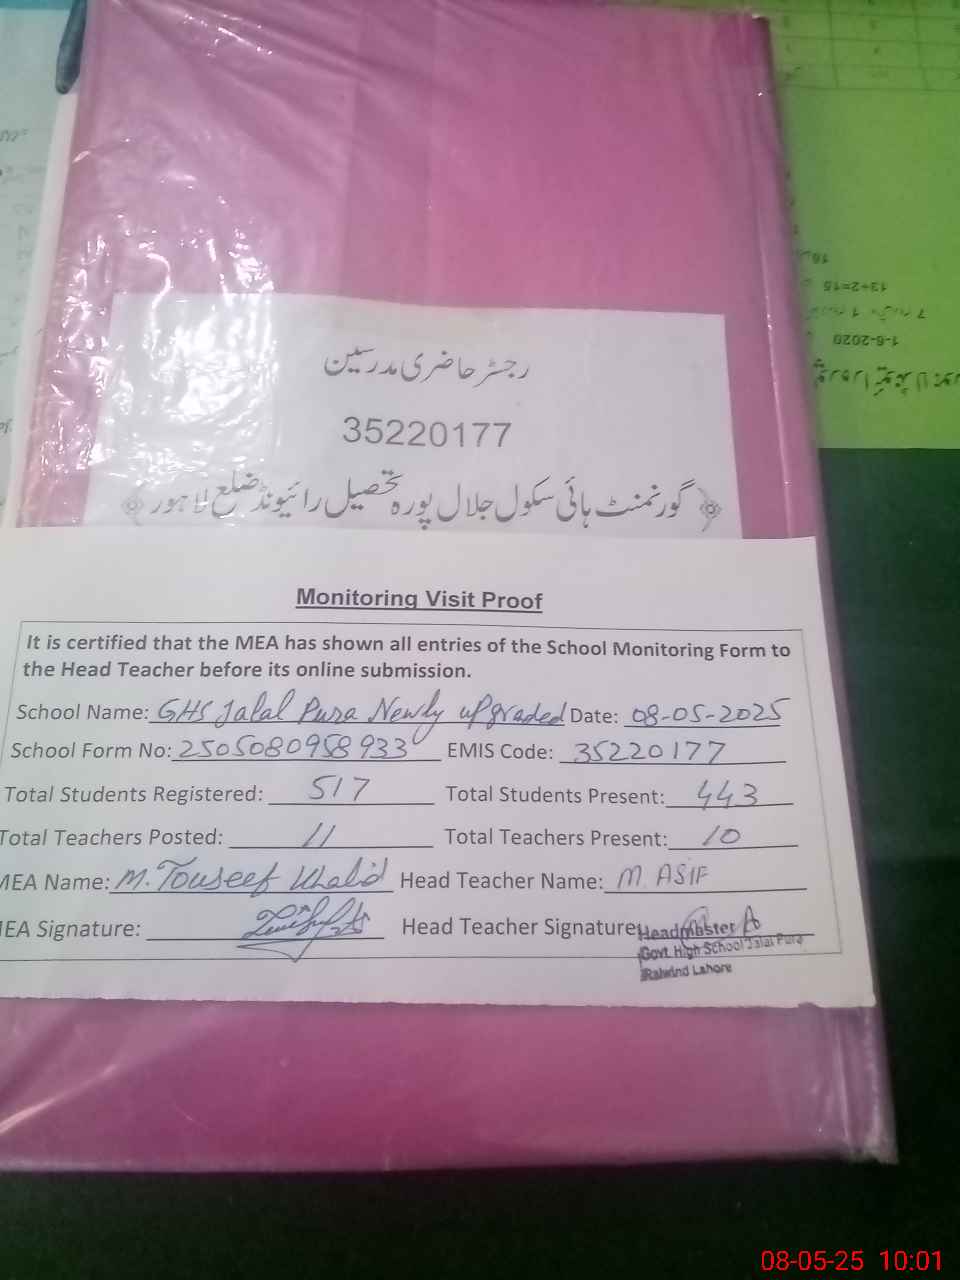 رجسٹر حاضری مدرسین
35220177
گورنمنٹ ہائی سکول جلال پورہ تحصیل رائیونڈ ضلع لاہور
Monitoring Visit Proof
It is certified that the MEA has shown all entries of the School Monitoring Form to
the Head Teacher before its online submission.
School Name: GHS Jalal Pura Newly upgraded Date: 08-05-2025
School Form No: 2505080958933 EMIS Code: 35220177
Total Students Registered: 517 Total Students Present: 443
Total Teachers Posted: 11 Total Teachers Present: 10
MEA Name: M. Touseef Khalid Head Teacher Name: M. ASIF
MEA Signature: Head Teacher Signature:
Headmaster
Govt. High School Jalal Pura
Raiwind Lahore
13+2=15
1-6-2020
08-05-25 10:01